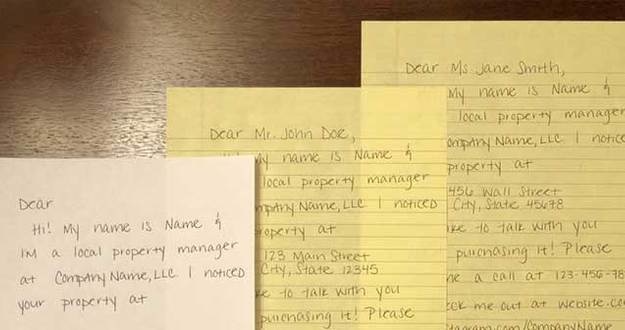 Dear
Hi! My name is Name &
I'm a local property manager
at Company Name, LLC. I noticed
your property at
Dear Mr. John Doe,
My name is Name &
local property manager
mpany Name, LLC. I noticed
roperty at
123 Main Street
City, State 12345
ke to talk with you
purchasing it! Please
Dear Ms Jane Smith,
My name is Name &
local property manager
ompany Name, LLC. I notice
property at
456 Wall Street
City, State 45678
ike to talk with you
purchasing it! Please
me a call at 123-456-78
eck me out at website.co
stagram.com/CompanyName